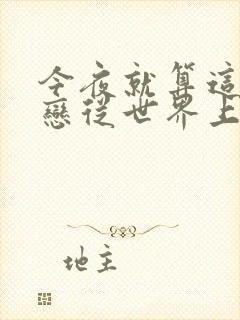 今夜就算這
戀從世界上
地主